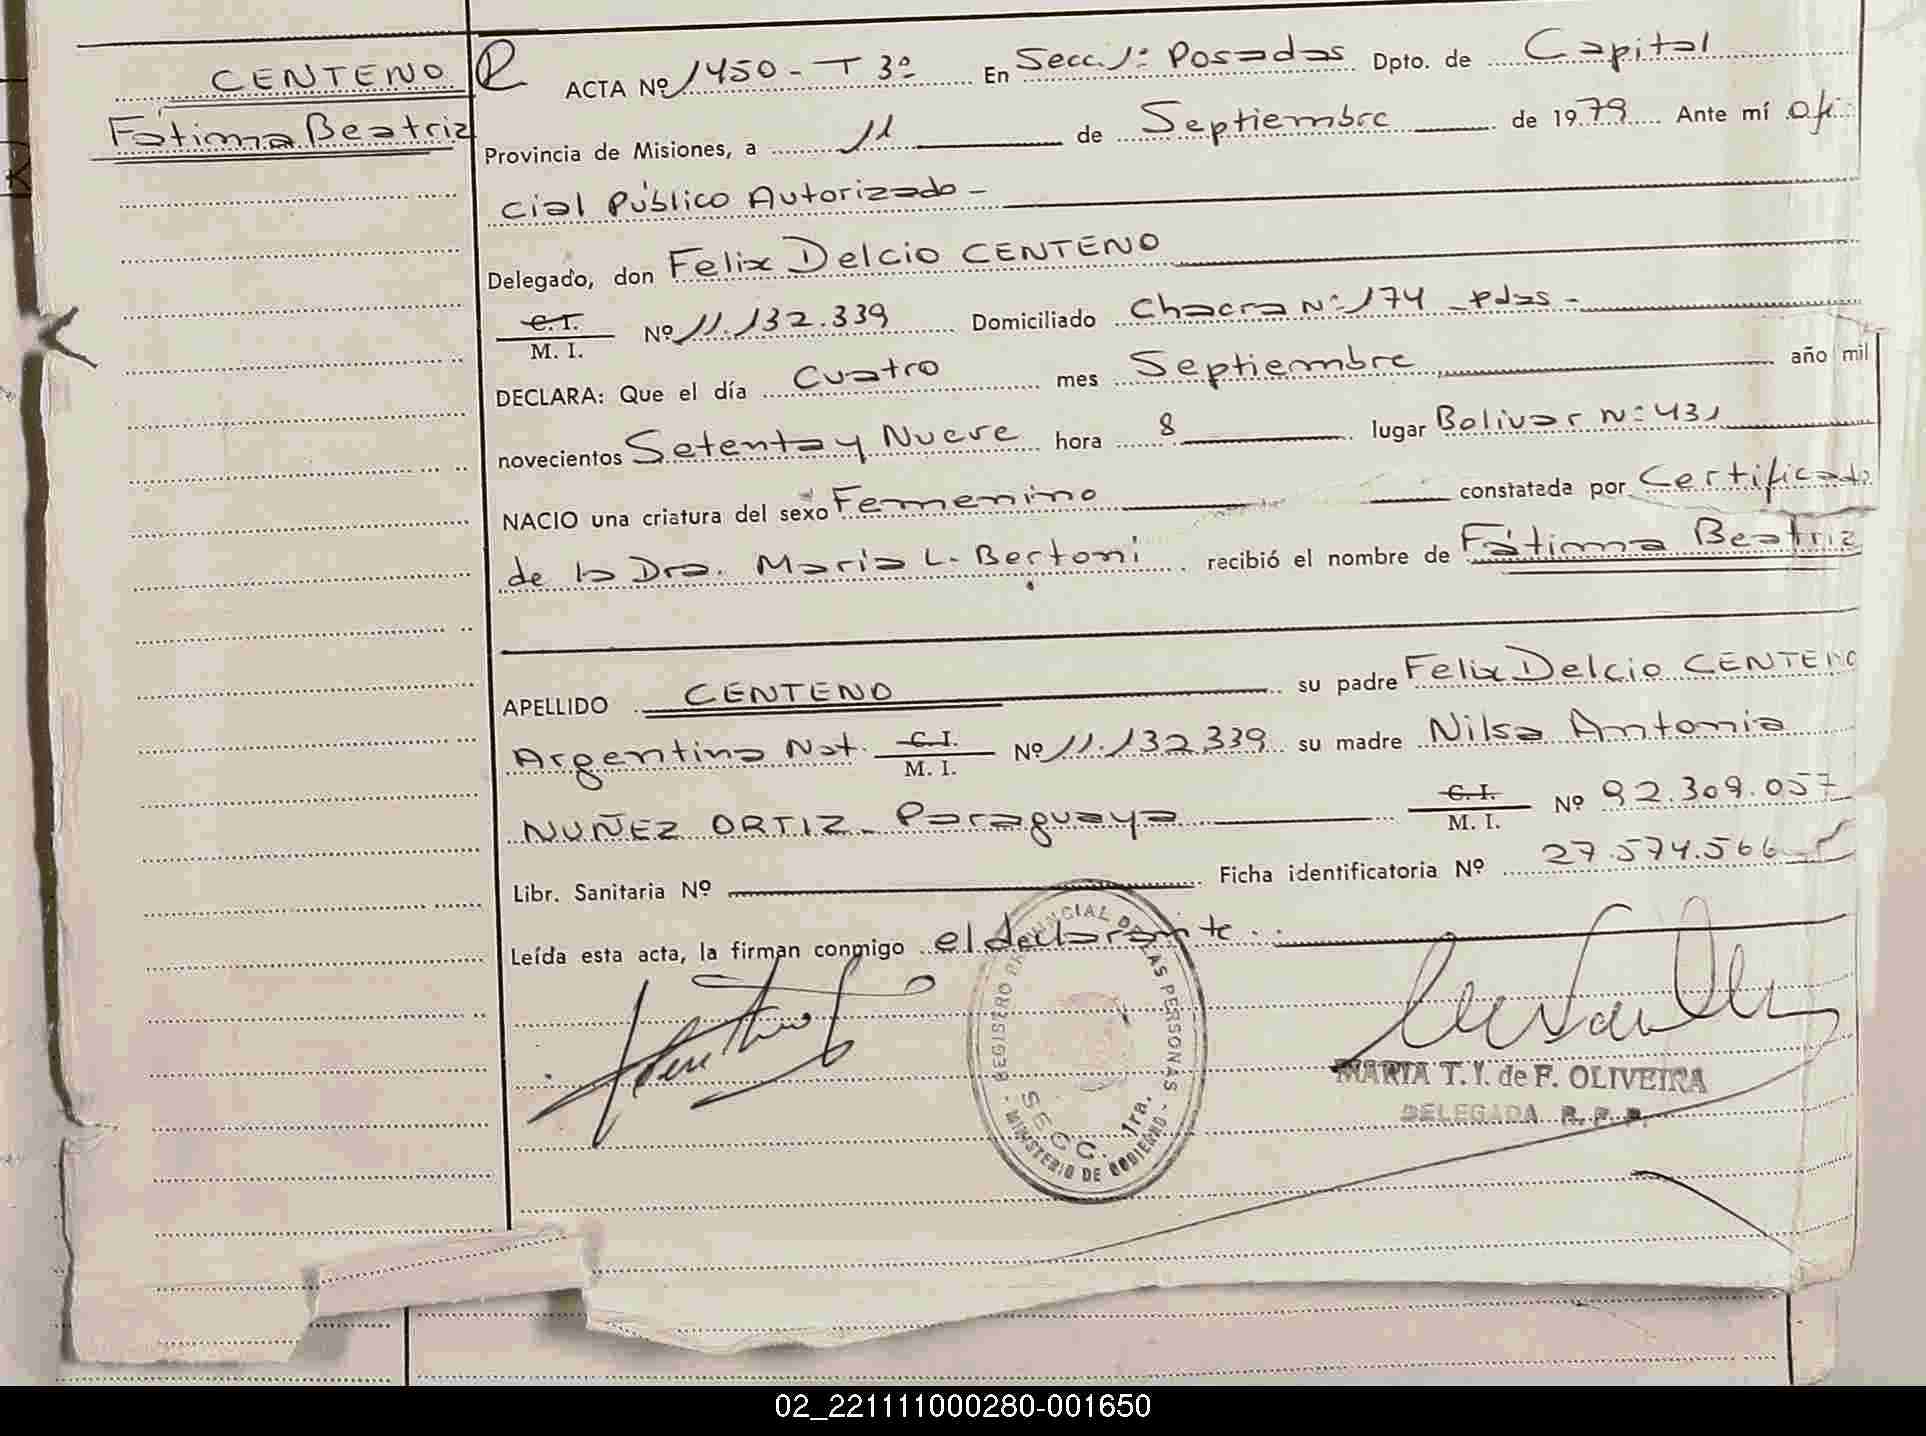 CENTENO
Fátima Beatriz
ACTA Nº 1450 - T 3º En Secc. 1º Posadas Dpto. de Capital
Provincia de Misiones, a 11 de Septiembre de 1979 Ante mí Ofi
cial Público Autorizado -
Delegado, don Felix Delcio CENTENO
C.I.
M. I. Nº 11.132.339 Domiciliado Chacra Nº 174 - Pdas -
DECLARA: Que el día Cuatro mes Septiembre año mil
novecientos Setenta y Nueve hora 8 lugar Bolivar Nº 431
NACIO una criatura del sexo Femenino constatada por Certificado
de la Dra. Maria L. Bertoni recibió el nombre de Fátima Beatriz
APELLIDO CENTENO su padre Felix Delcio CENTENO
Argentino Nat. C.I. M. I. Nº 11.132.339 su madre Nilsa Antonia
NUÑEZ ORTIZ - Paraguaya C.I. M. I. Nº 92.309.057
Libr. Sanitaria Nº Ficha identificatoria Nº 27.574.566
Leída esta acta, la firman conmigo el declarante
REGISTRO PROVINCIAL DE LAS PERSONAS
SECC. 1ra.
MINISTERIO DE GOBIERNO
MARIA T. Y. de F. OLIVEIRA
DELEGADA R. P. P.
02_221111000280-001650